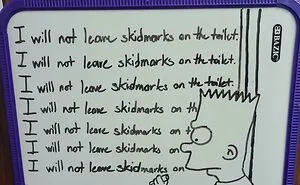 I will not leave skidmarks on the toilet.
I will not leave skidmarks on the toilet.
I will not leave skidmarks on the toilet.
I will not leave skidmarks on th
I will not leave skidmarks on t
I will not leave skidmarks on
I will not leave skidmarks on
BAZIC